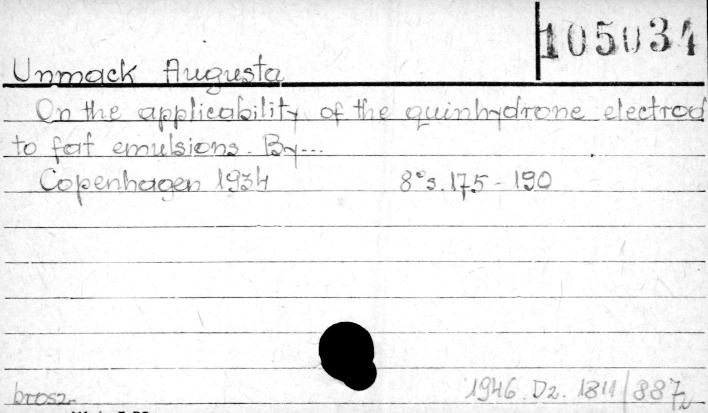 105034
Unmack Augusta
On the applicability of the quinhydrone electrod
to fat emulsions. By...
Copenhagen 1934 8° s. 175-190
brosz. 1946. Dz. 1811/887